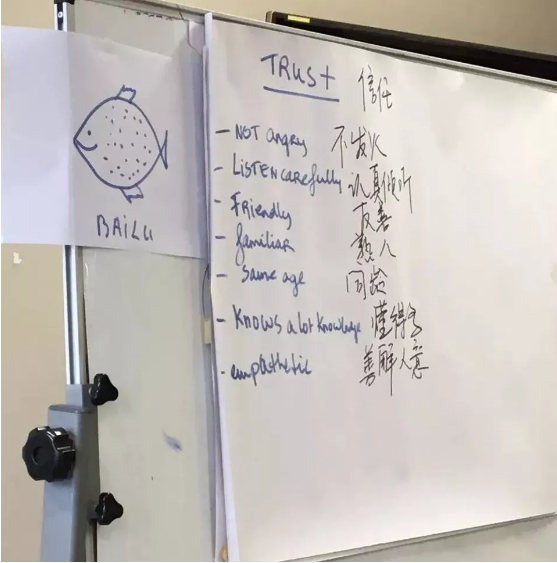 TRUST 信任
- NOT angry 不发火
- LISTEN carefully 认真倾听
- Friendly 友善
- familiar 熟人
- same age 同龄
- KNOWS a lot knowledge 懂得多
- empathetic 善解人意
BAILU